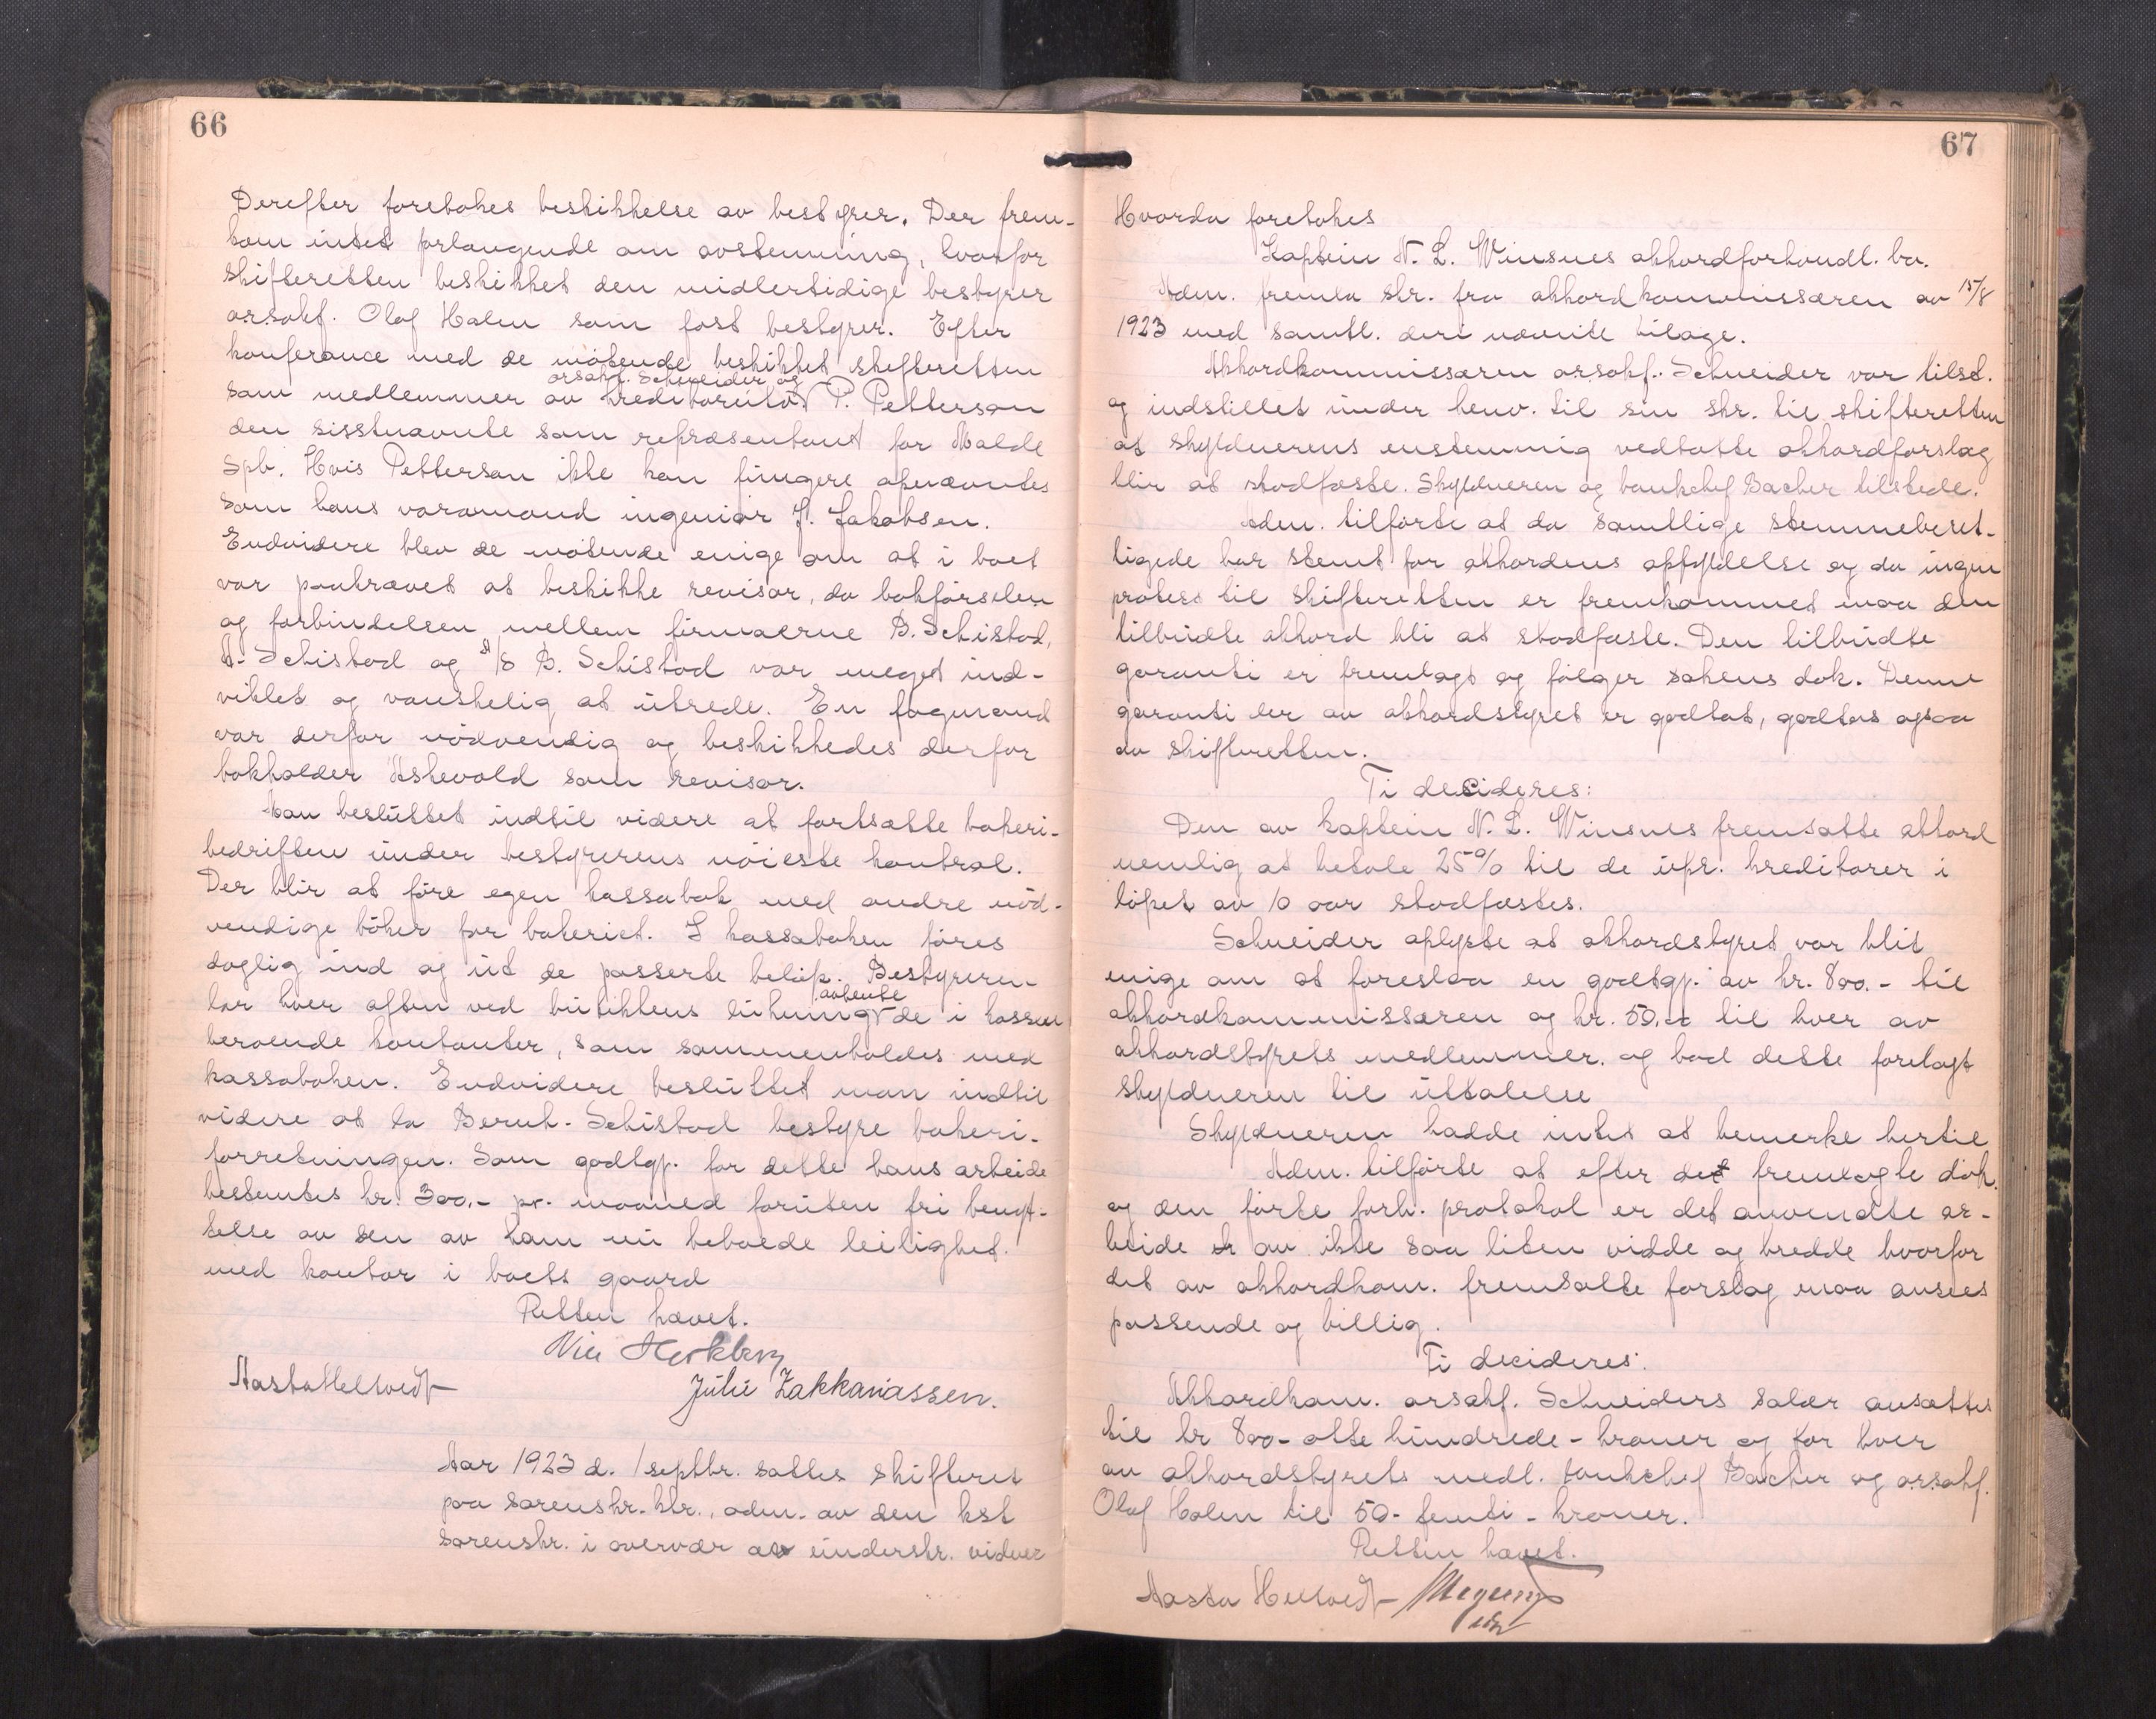 66
Derefter foretokes beskikkelse av bestyrer. Der frem-
kom intet forlangende om avstemning, hvorfor
skifteretten beskikket den midlertidige bestyrer
o.r.sakf. Olaf Holen som fast bestyrer. Efter
konferance med de møtende beskikket skifteretten
orsakf. Schneider og
som medlemmer av kreditorutv. P. Petterson
den sisstnævnte som repræsentant for Molde
Spb. Hvis Petterson ikke kan fungere opnævntes
som hans varamand ingeniør J. Jakobsen.
Endvidere blev de møtende enige om at i boet
var paakrævet at beskikke revisor, da bokførselen
og forbindelsen mellem firmaerne B. Schistad,
A. Schistad og A/S B. Schistad var meget ind-
viklet og vanskelig at utrede. En fagmand
var derfor nødvendig og beskikkedes derfor
bokholder Askevold som revisor.
Man besluttet indtil videre at fortsætte bakeri-
bedriften under bestyrerens nøieste kontrol.
Der blir at føre egen kassabok med andre nød-
vendige bøker for bakeriet. I kassaboken føres
daglig ind og ut de passerte beløp. Bestyreren
avhente
lar hver aften ved butikkens lukning de i kassen
beroende kontanter, som sammenholdes med
kassaboken. Endvidere besluttet man indtil
videre at la Bernh. Schistad bestyre bakeri-
forretningen. Som godtgj. for dette hans arbeide
bestemtes kr. 300,- pr. maaned foruten fri benyt-
telse av den av ham nu beboede leilighet.
med kontor i boets gaard
Retten hævet.
Aasta Heltvedt
Julie Zakkariassen.
Aar 1923 d. 1 septbr. sattes skifteret
paa sorenskr. ktr., adm. av den kst
sorenskr. i overvær av underskr. vidner
67
Hvorda foretokes
Kaptein N. L. Winsnes akkordforhandl. bo.
Adm. fremla skr. fra akkordkommissæren av 15/8
1923 med samtl. deri nævnte bilage.
Akkordkommissæren o.r.sakf. Schneider var tilst.
og indstillet under henv. til sin skr. til skifteretten
at skyldnerens enstemmig vedtatte akkordforslag
blir at stadfæste. Skyldneren og bankchef Bacher tilstede.
Adm. tilførte at da samtlige stemmeberet-
tigede har stemt for akkordens opfyldelse og da ingen
protest til skifteretten er fremkommet maa den
tilbudte akkord bli at stadfæste. Den tilbudte
garanti er fremlagt og følger sakens dok. Denne
garanti der av akkordstyret er godtat, godtas ogsaa
av skifteretten.
Ti decideres:
Den av kaptein N. L. Winsnes fremsatte akkord
nemlig at betale 25% til de upr. kreditorer i
løpet av 10 aar stadfæstes.
Schneider oplyste at akkordstyret var blit
enige om at foreslaa en godtgj. av kr. 800.- til
akkordkommissæren og kr. 50.- til hver av
akkordstyrets medlemmer. og bad dette forelagt
skyldneren til uttalelse
Skyldneren hadde intet at bemerke hertil
Adm. tilførte at efter det fremlagte dok.
og den førte forh. protokol er det anvendte ar-
beide av ikke saa liten vidde og bredde hvorfor
det av akkordkom. fremsatte forslag maa ansees
passende og billig.
Ti decideres:
Akkordkom. orsakf. Schneiders salær ansættes
til kr 800- otte hundrede - kroner og for hver
av akkordstyrets medl. bankchef Bacher og o.r.sakf.
Olaf Holen til 50- femti - kroner.
Retten hævet.
Aasta Heltvedt